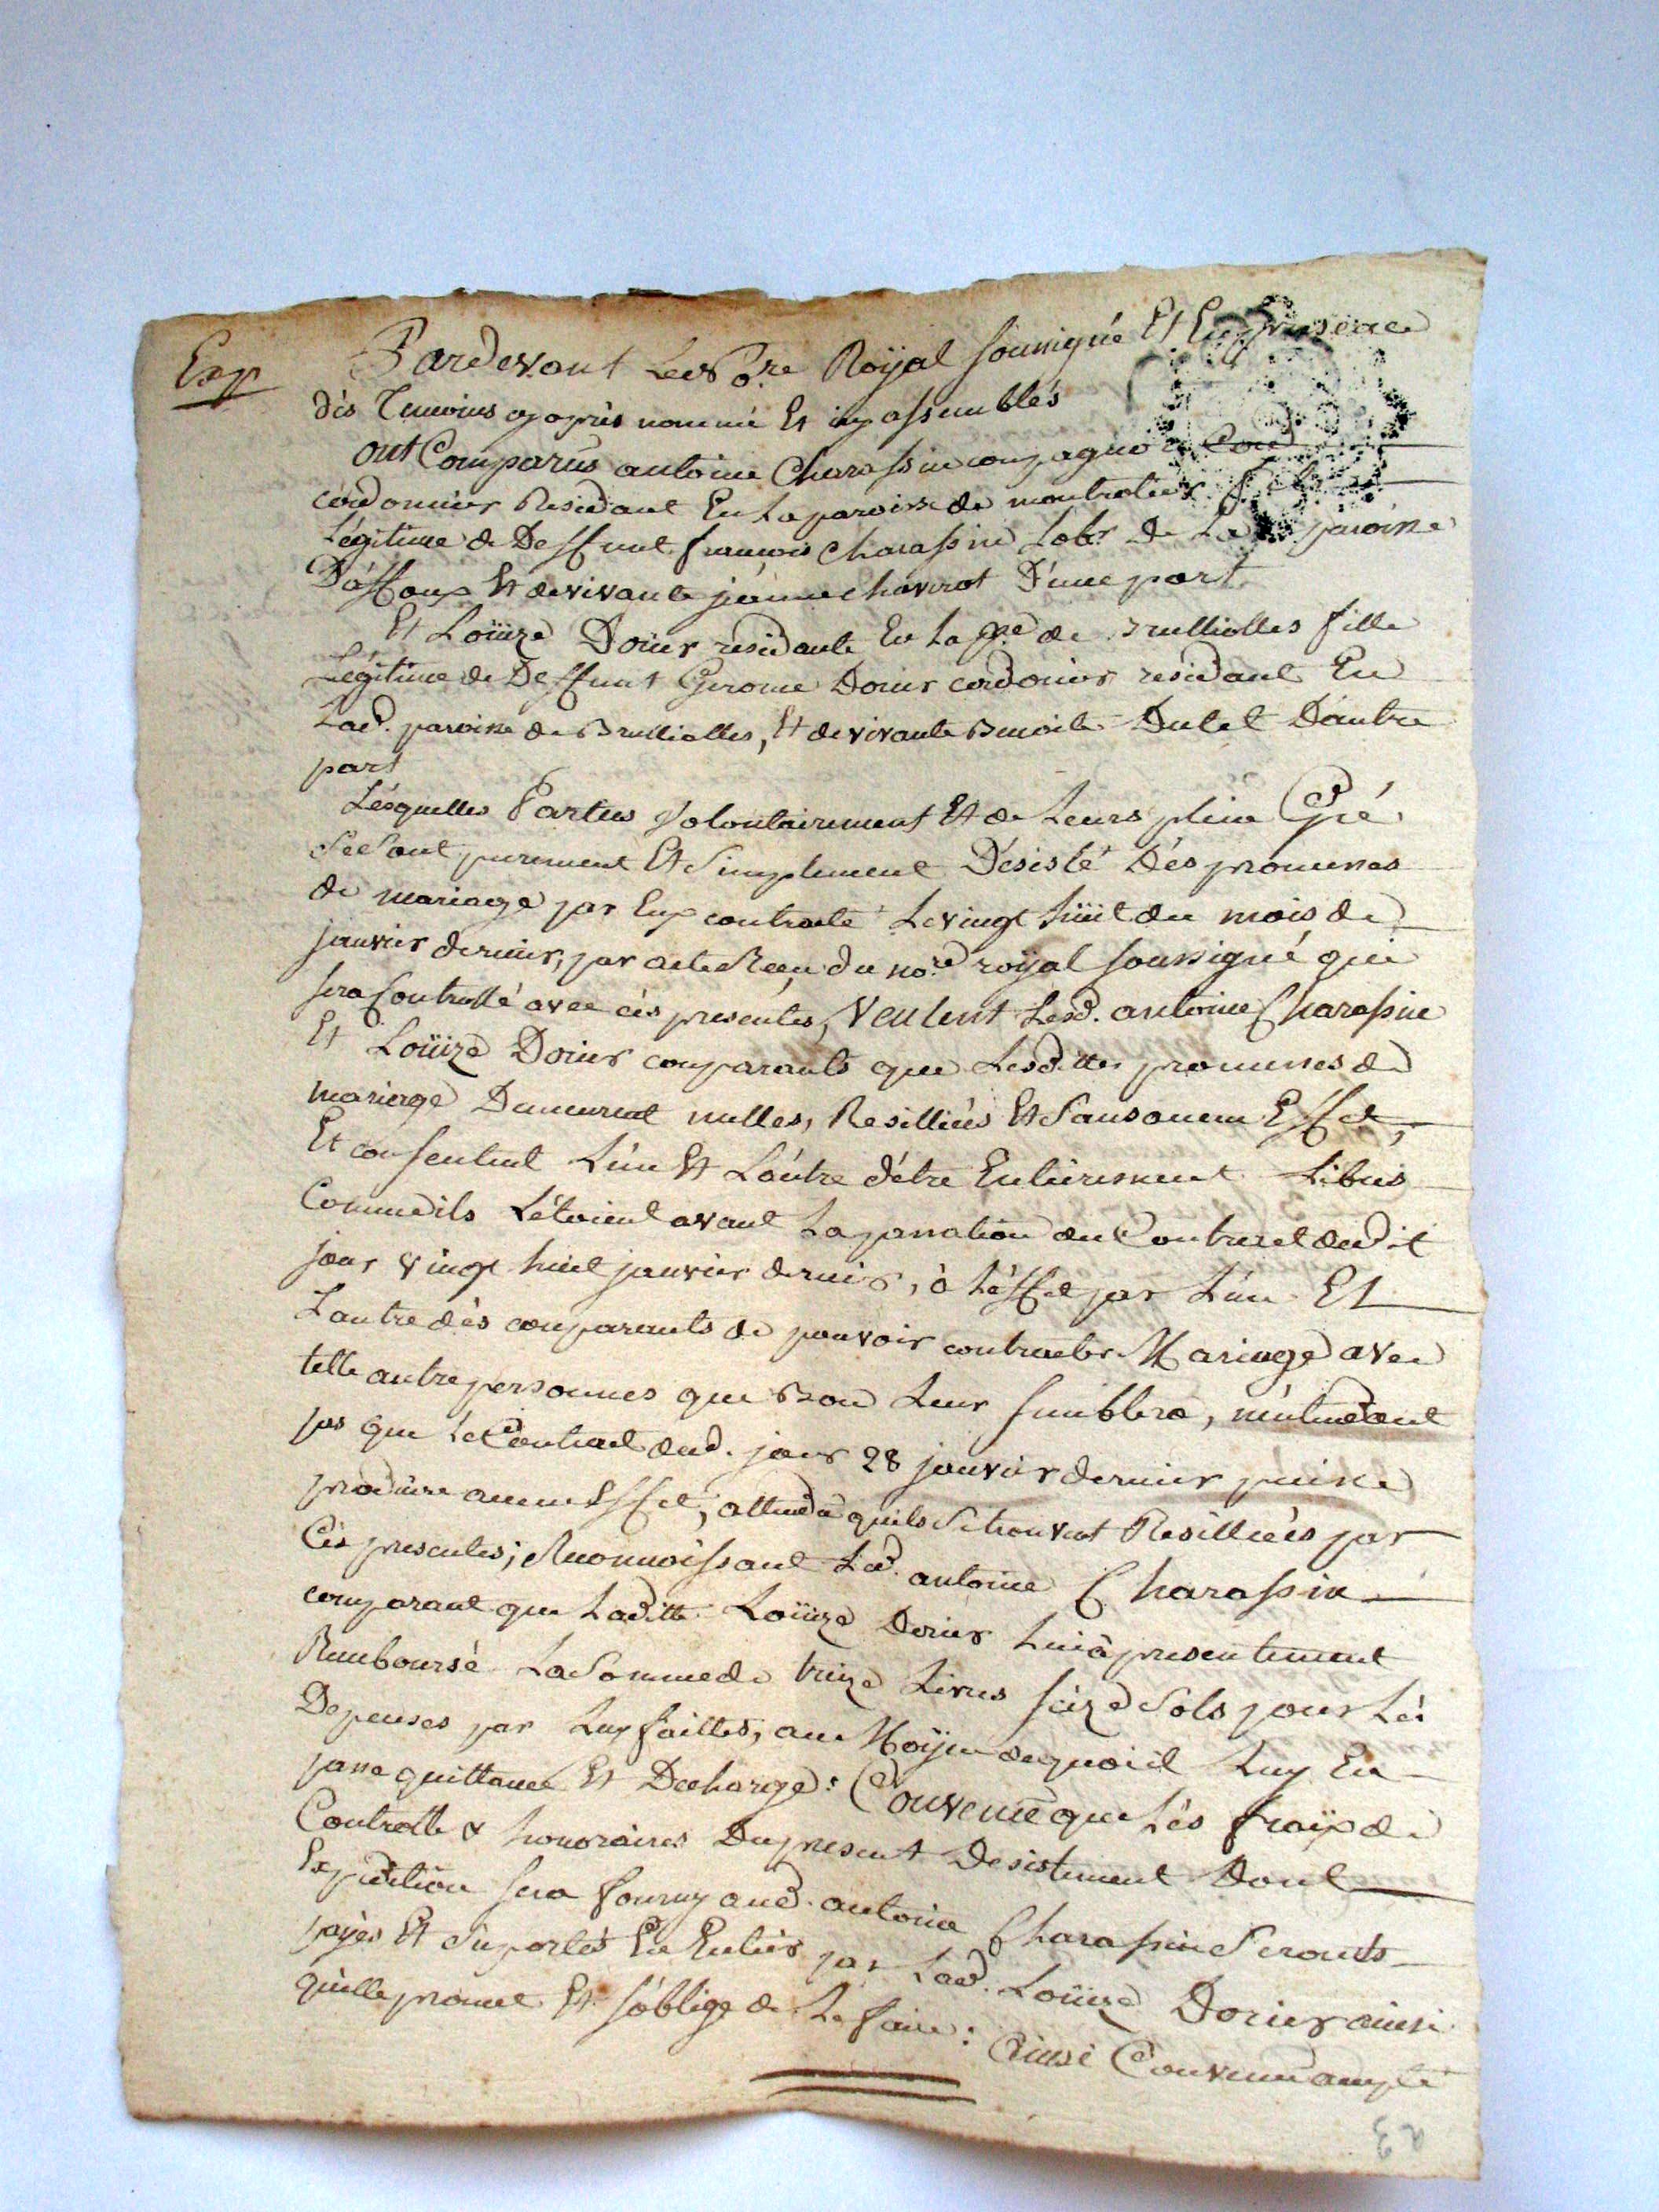 Exp
Pardevant Le No.re Roÿal soussigné Et En presence
dès Temoins cy après nommé Et icy assemblés
ont Comparûs antoine Charassin compagnon
cordonnier Residant En La paroisse de montrotier fils
Légitime de Deffunt francois Charassin Labr. De La paroisse
D'affoux Et de vivante jeanne chavrot D'une part
Et Loüize Dorier résidante En La pse de Brullioles fille
Légitime de Deffunt Gerome Dorier cordonier residant En
Lad. paroisse de Brullioles, Et de vivante Benoite Dutel D'autre
part
Lésquelles Parties Volontairement Et de Leurs plein Gré
Se Sont purement Et Simplement Désisté Dés promesses
de mariage par Eux contracté Le vingt hüit du mois de
janvier dernier, par acte Reçu du no.re roÿal soussigné qui
sera Controllé avec cès presentes, Veulent Lesd. antoine Charassin
Et Loüize Dorier comparants que Lesdittes promesses de
mariage Demeurent nulles, Resilliées Et Sans aucun Effet,
Et consentent L'un Et L'autre d'être Entierement Libres
Comme ils L'étoient avant La passation du Contract dudit
jour vingt huit janvier dernier, à L'éffet par L'un Et
L'autre dès comparants de pouvoir contracter Mariage avec
telle autre personnes que Bon Leur semblera, n'entendent
pas que Le Contract dud. jour 28 janvier dernier puisse
produire aucun Effet, attendu quils Se trouvent Resilliées par
Cès presentes; Reconnoissant Led. antoine Charassin
comparant que Laditte Loüize Dorier Lui à presentement
Remboursé La Somme de treize Livres seize Sols pour Lés
Depenses par Luy faittes, au Moÿen de quoi il Luy En
passe quittance Et Decharge: Convenu que Lés fraix de
Controlle & honoraires Du present Desistement Dont
Expedition sera fourny aud. antoine Charassin Seronts
payés Et Suportés En Entier par Lad. Loüize Dorier ainsi
qu'elle promet Et s'oblige de Le faire: Ainsi Convenu accepté